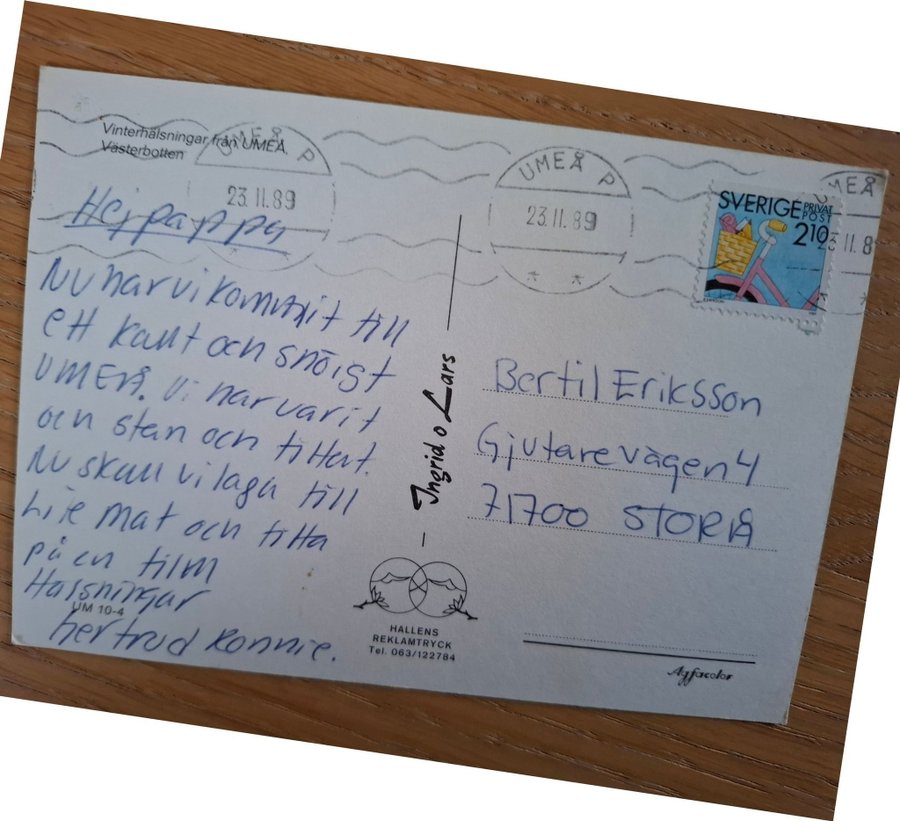 Vinterhälsningar från UMEÅ.
Västerbotten
UMEÅ P
23.11.89
Hej pappa
Nu har vi kommit till
ett kallt och snöigt
UMEÅ. Vi har varit
och stan och tittat.
Nu skall vi laga till
Lite mat och titta
på en film
Hälsningar
UM 10-4
Gertrud Ronnie.
Ingrid o Lars
HALLENS
REKLAMTRYCK
Tel. 063/122784
UMEÅ P
23.11.89
MEÅ
11.8
SVERIGE PRIVAT
POST
210
Bertil Eriksson
Gjutarevägen 4
71700 STORÅ
Agfacolor